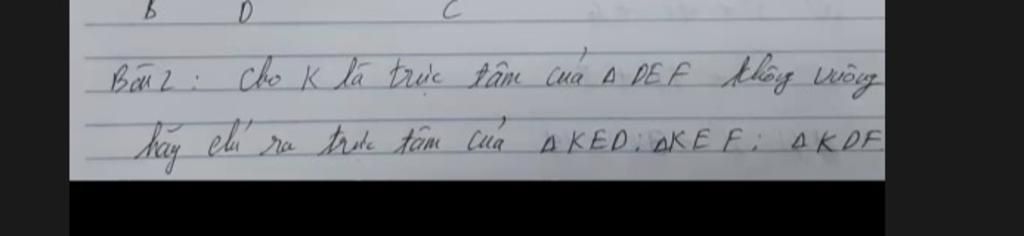 B D C
Bài 2: Cho K là trực tâm của Δ DEF không vuông
hãy chỉ ra trực tâm của Δ KED; Δ KEF; Δ KDF